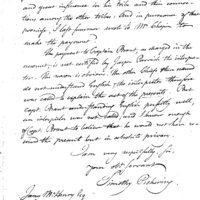 and great influence in his tribe and their connec-
tions among the other tribes. And in pursuance of that
promise, I left summer went to Mr Chapin to
make the payment.
The payment to Captain Brant, as charged in the
account, is not certified by Jasper Parrish the interpre-
ter. The reason is obvious. The other Chiefs who
do not understand English & the interpreter therefore
was used to explain the acts of the presents. But
Capt. Brant understanding English perfectly well,
an interpreter was not used, and knew enough
of Capt. Brant to believe that he would not have re-
ceived the present but in absolute private.
I am very respectfully, sir
your obt. servant
Timothy Pickering.
James McHenry Esq